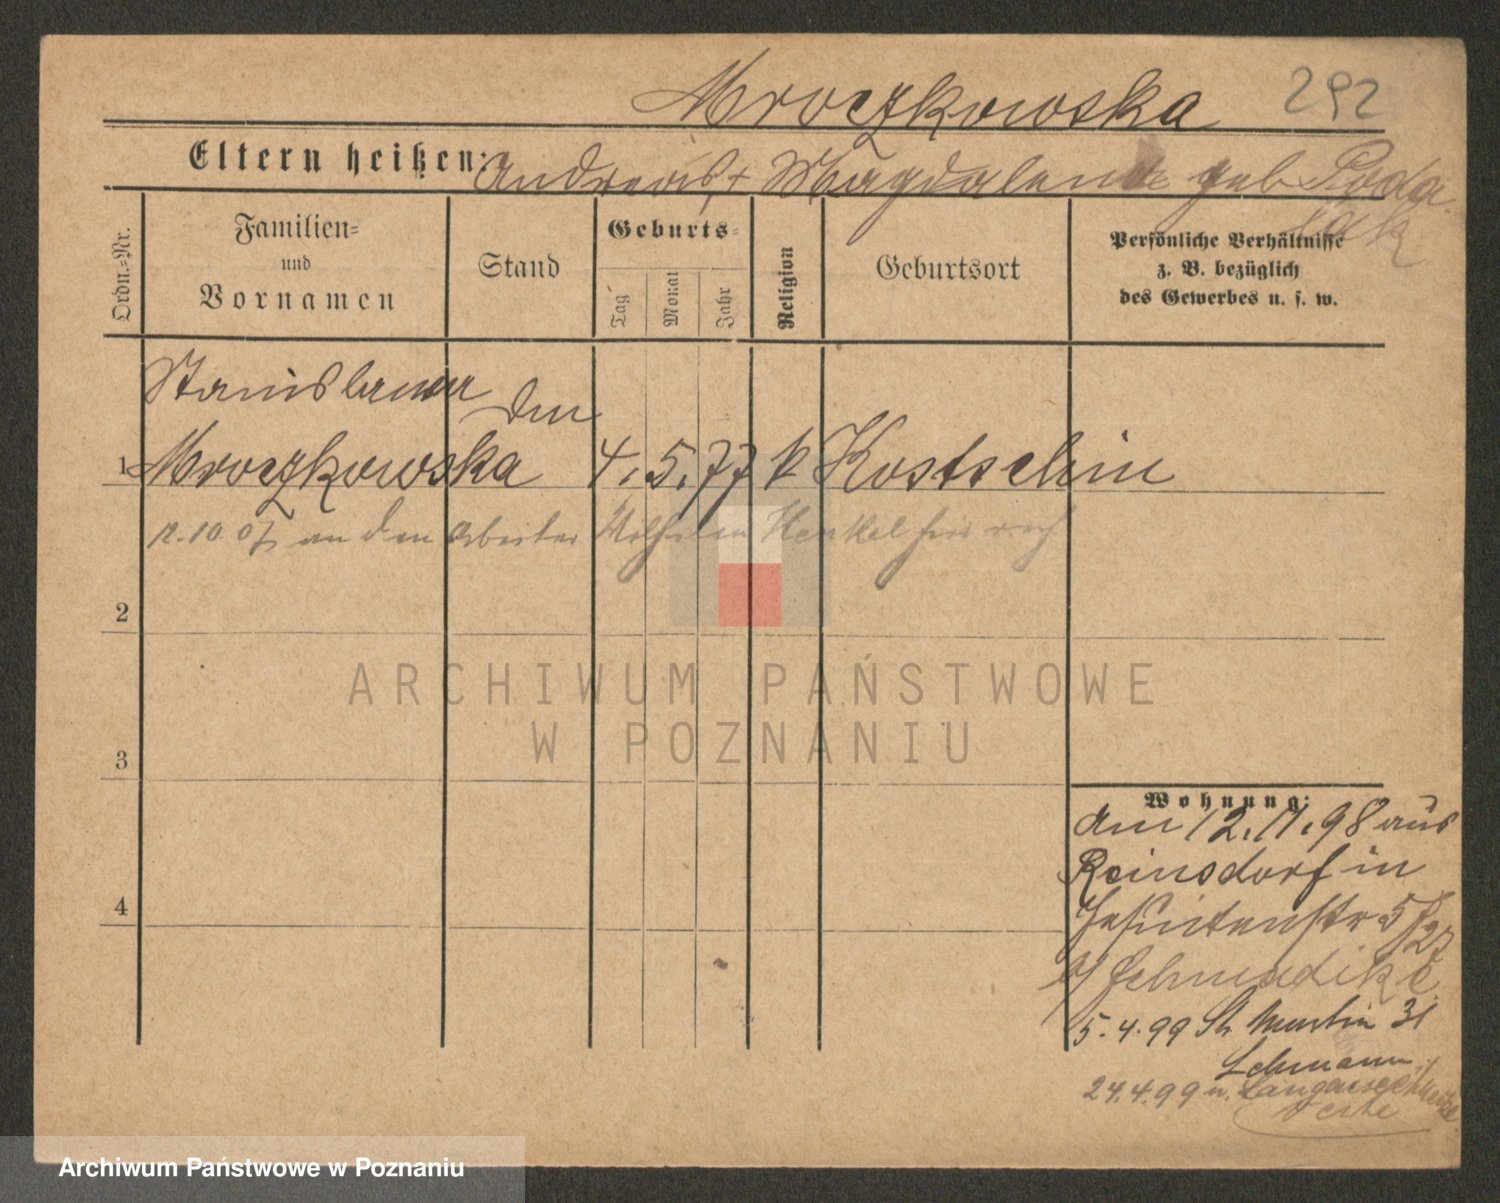 Mroczkowska 292
Eltern heißen: Andreas + Magdalena geb
Ordn.-Nr.
Familien-
und
Vornamen
Stand
Geburts-
Tag
Monat
Jahr
Religion
Geburtsort
Persönliche Verhältnisse
z. B. bezüglich
des Gewerbes u. s. w.
Stanislawa
1 Mroczkowska 4. 5. 77 k Kostschin
12.10.07 an den Arbeiter Wilhelm Henkel hier verh
2
3
4
Wohnung:
am 12.11.98 aus
Reinsdorf in
Jesuitenstr 5
b/ Schmädike
5.4.99 St. Martin 31
Lehmann
24.4.99 n.
ARCHIWUM PAŃSTWOWE
W POZNANIU
Archiwum Państwowe w Poznaniu